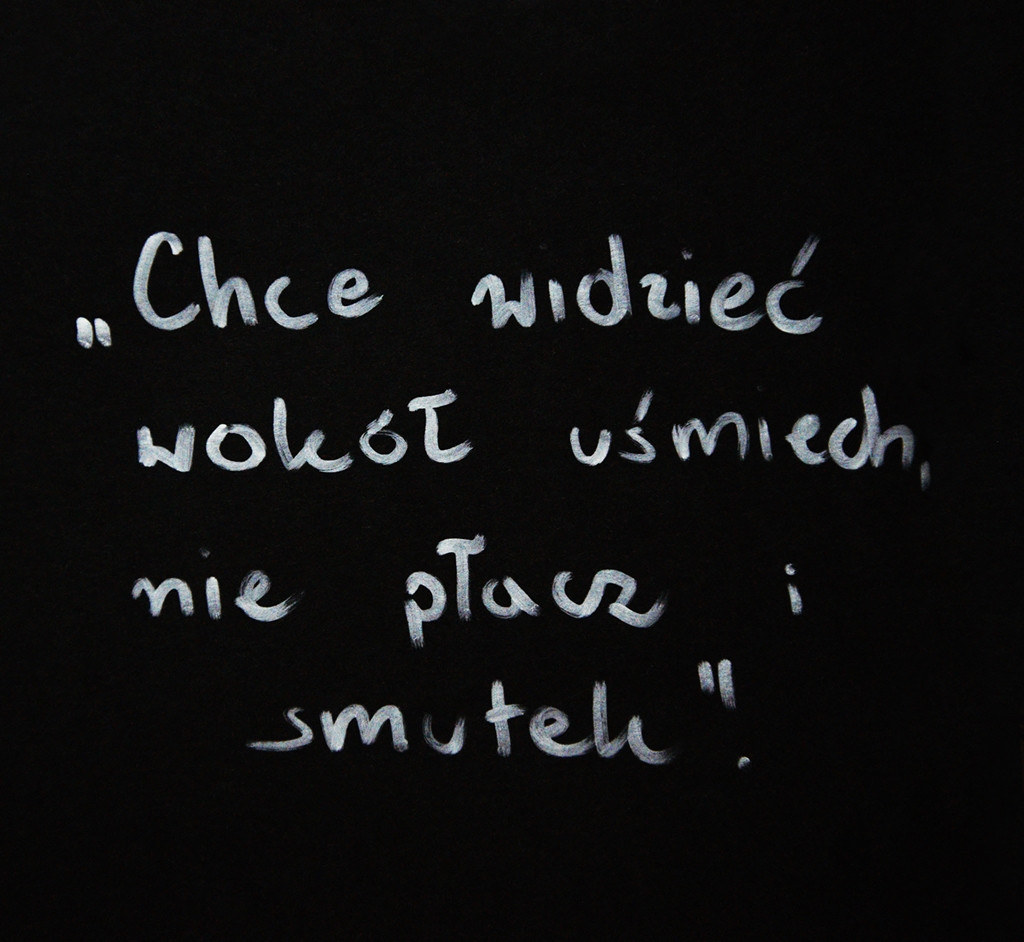 „Chce widzieć
wokół uśmiech,
nie płacz i
smutek".